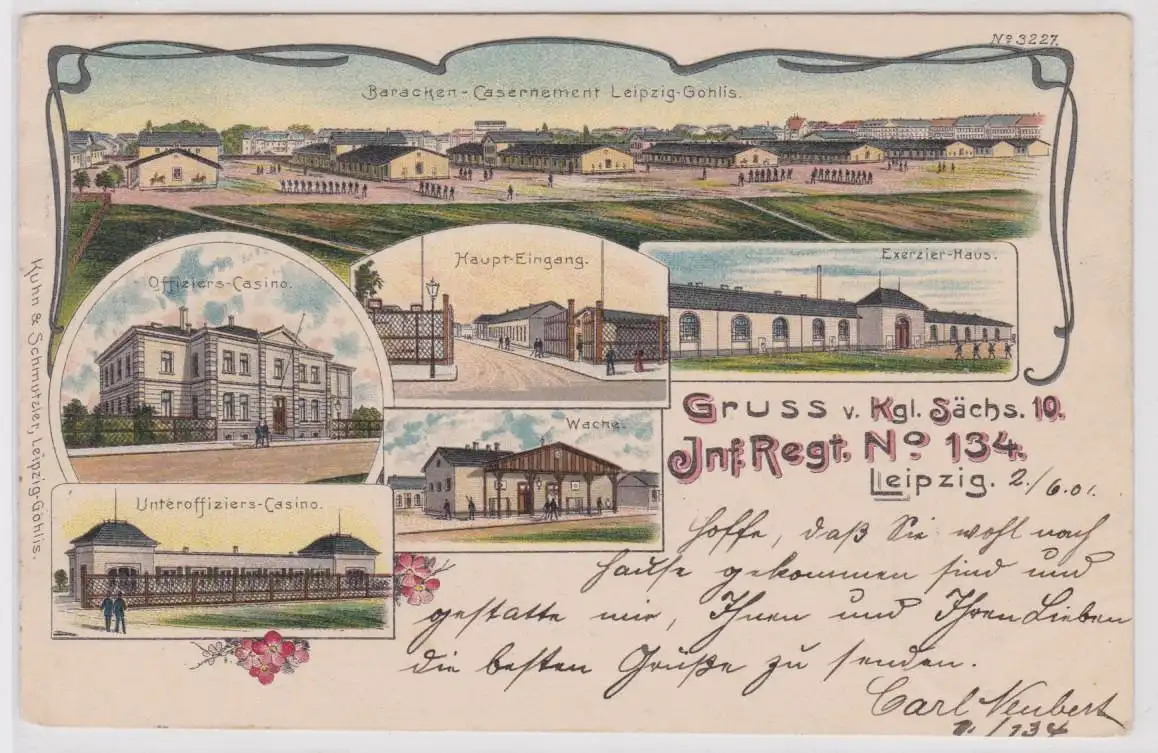 No 3227.
Baracken-Casernement Leipzig-Gohlis.
Offiziers-Casino.
Haupt-Eingang.
Exerzier-Haus.
Wache.
Unteroffiziers-Casino.
Kuhn & Schmutzler, Leipzig-Gohlis.
Gruss v. Kgl. Sächs. 10.
Inf. Regt. No 134.
Leipzig. 2./6.01.
Hoffe, daß Sie wohl nach
Hause gekommen sind und
gestatte mir, Ihnen und Ihren Lieben
die besten Grüße zu senden.
Carl Neubert
/134